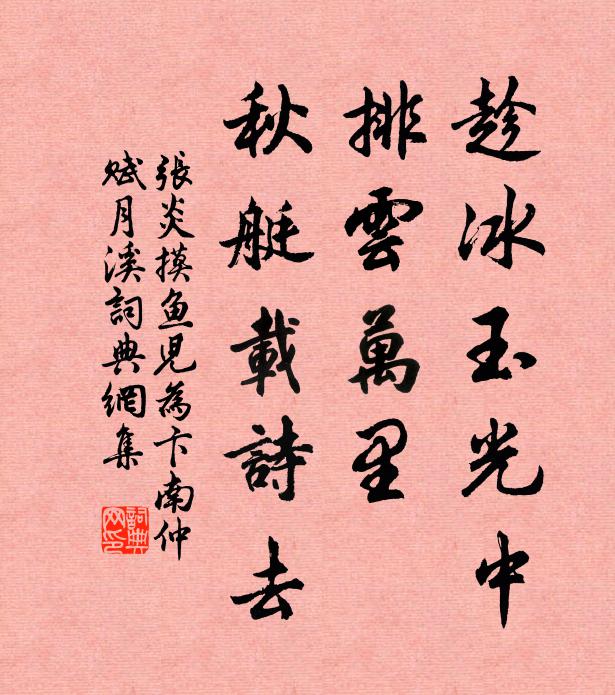 趁冰玉光中
排雲萬里
秋艇載詩去
張炎摸魚児為卞南仲
賦月溪詞典網集
詞典網印